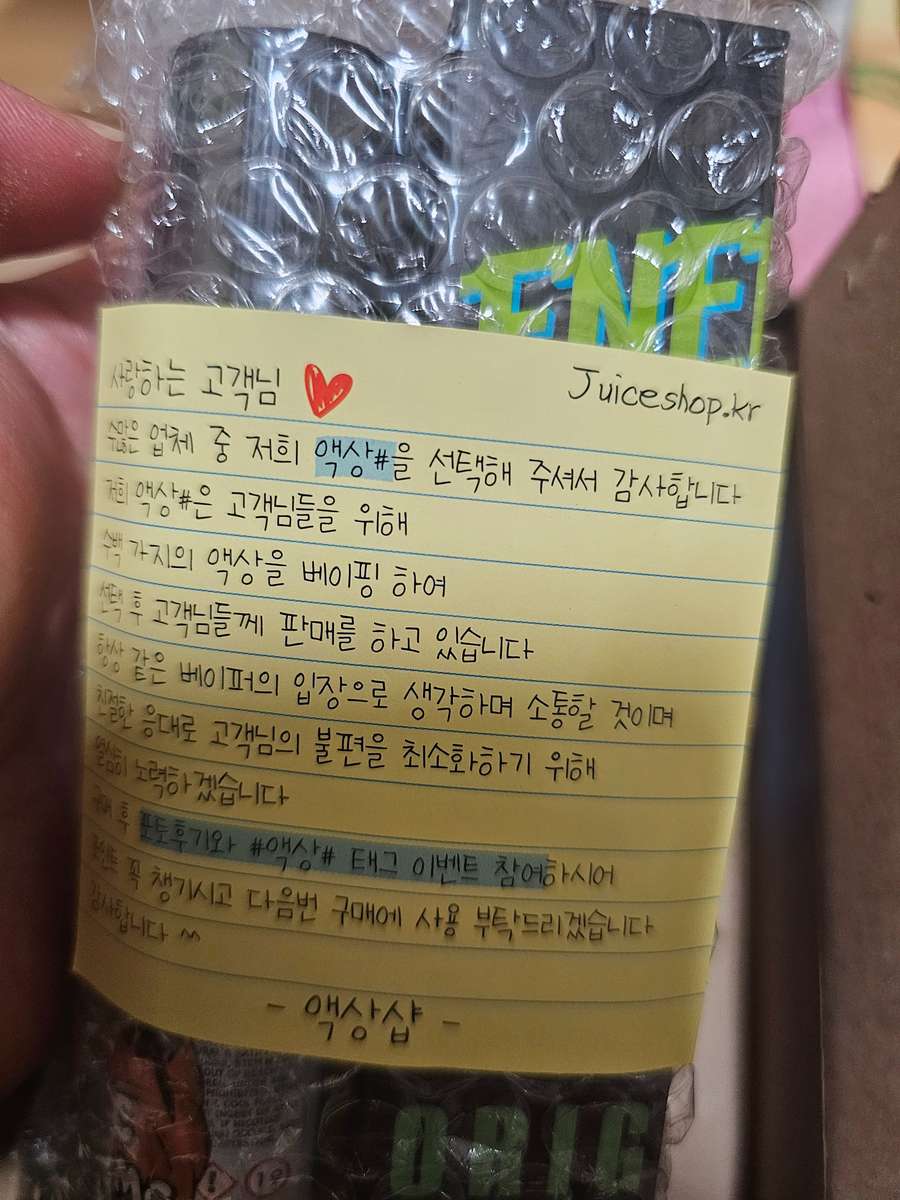 ENE
사랑하는 고객님
Juiceshop.kr
수많은 업체 중 저희 액상#을 선택해 주셔서 감사합니다
저희 액상#은 고객님들을 위해
수백 가지의 액상을 베이핑 하여
선택 후 고객님들께 판매를 하고 있습니다
항상 같은 베이퍼의 입장으로 생각하며 소통할 것이며
친절한 응대로 고객님의 불편을 최소화하기 위해
열심히 노력하겠습니다
구매 후 포토후기와 #액상# 태그 이벤트 참여하시어
포인트 꼭 챙기시고 다음번 구매에 사용 부탁드리겠습니다
감사합니다 ^^
- 액상샵 -
ORIG